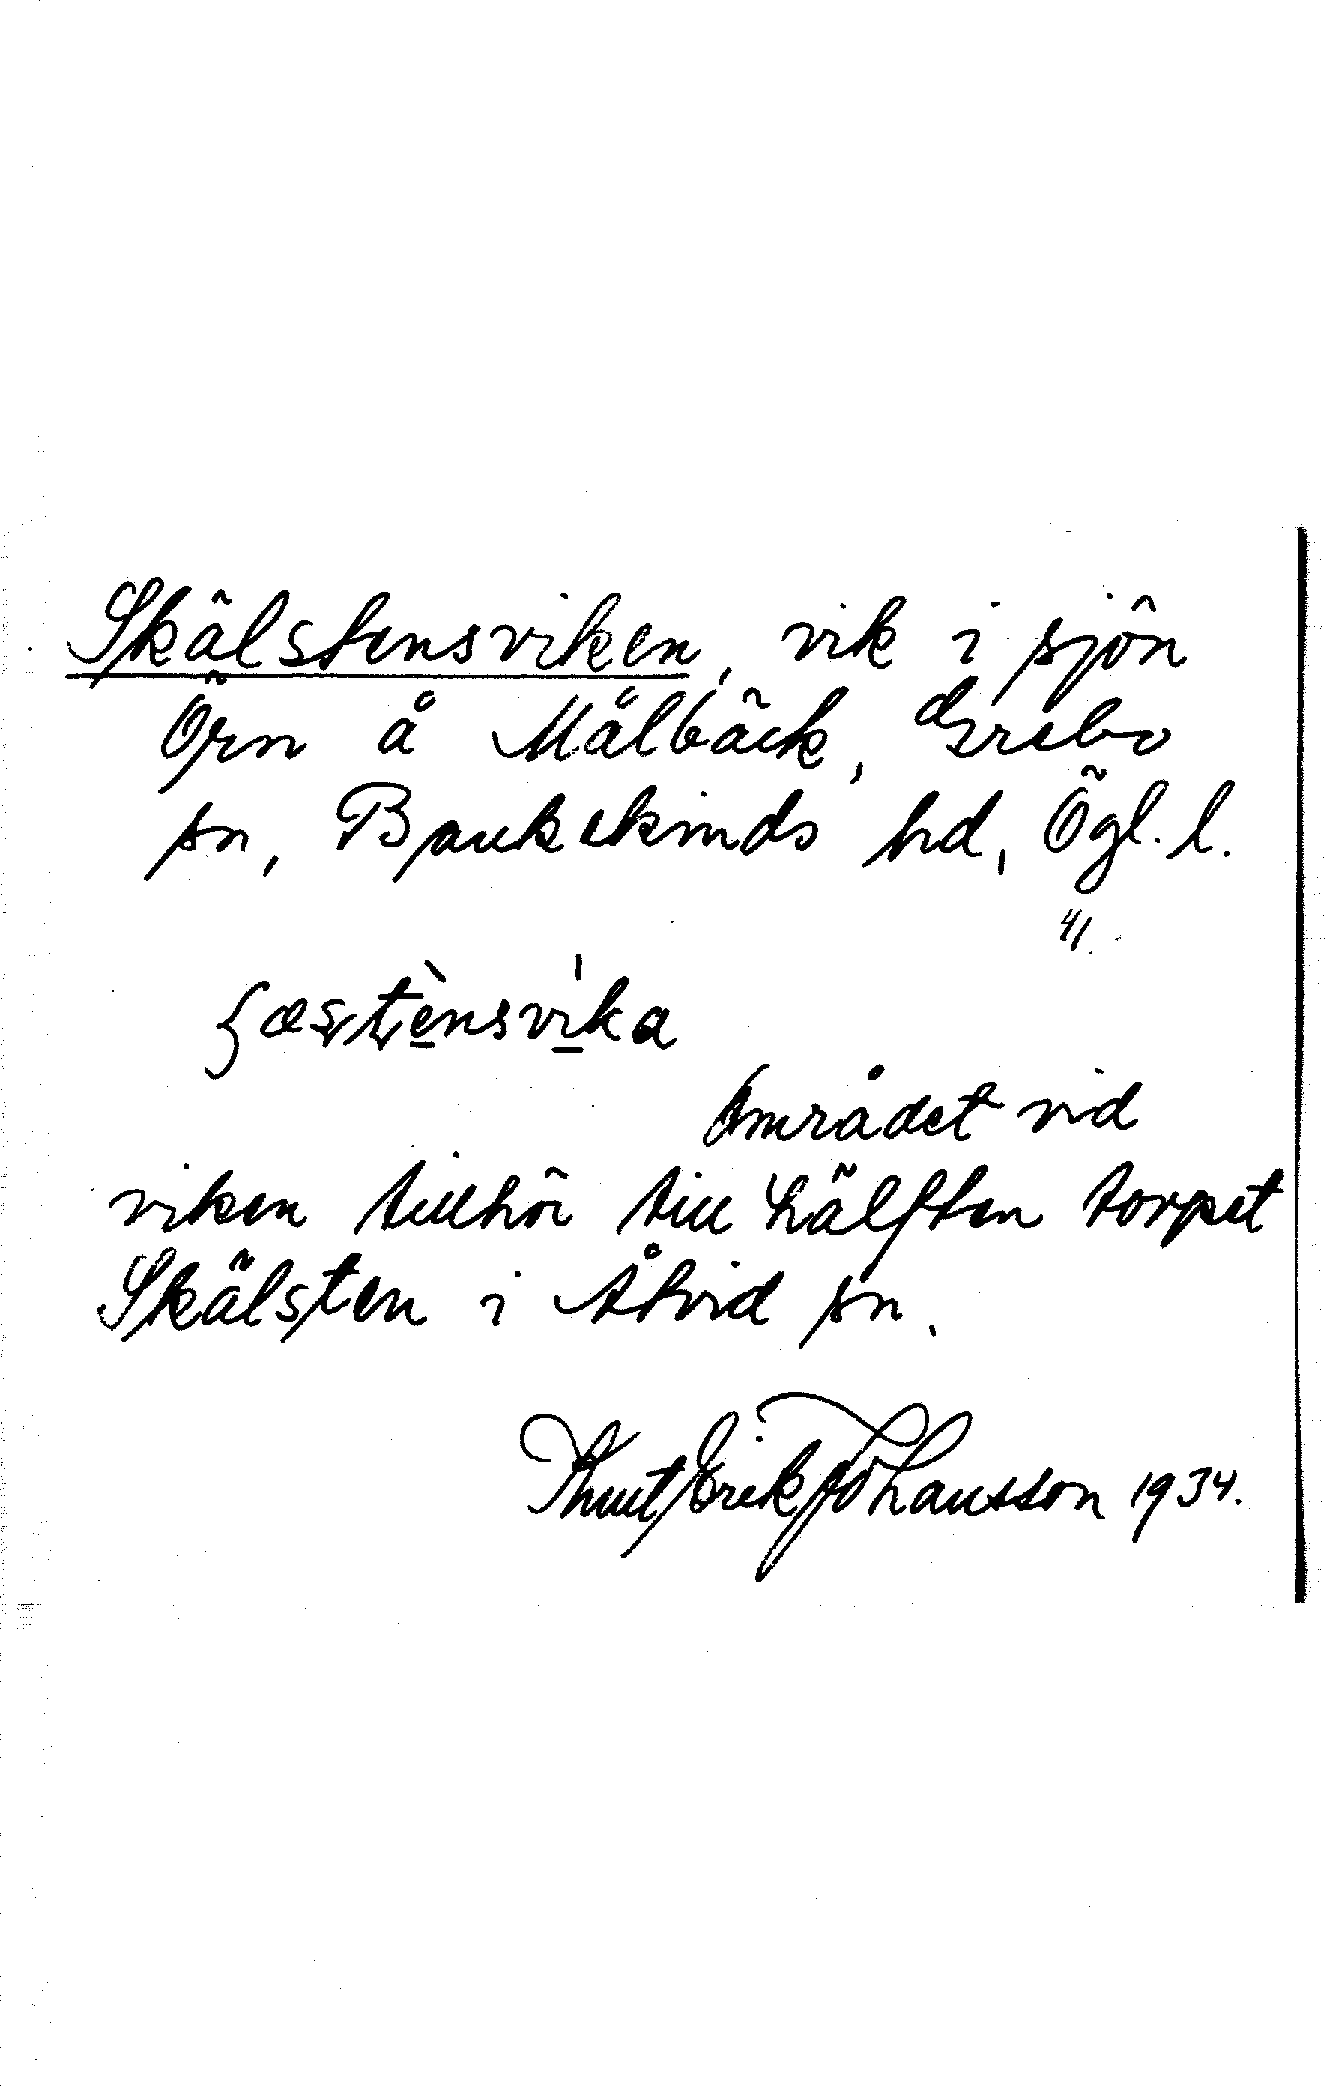 Skälstensviken, vik i sjön
Örn å Målbäck, Grebo
sn, Bankekinds hd, Ögl. l.
41.
Området vid
viken tillhör till hälften torpet
Skälsten i Åtvid sn.
Knut Erik Johansson 1934.